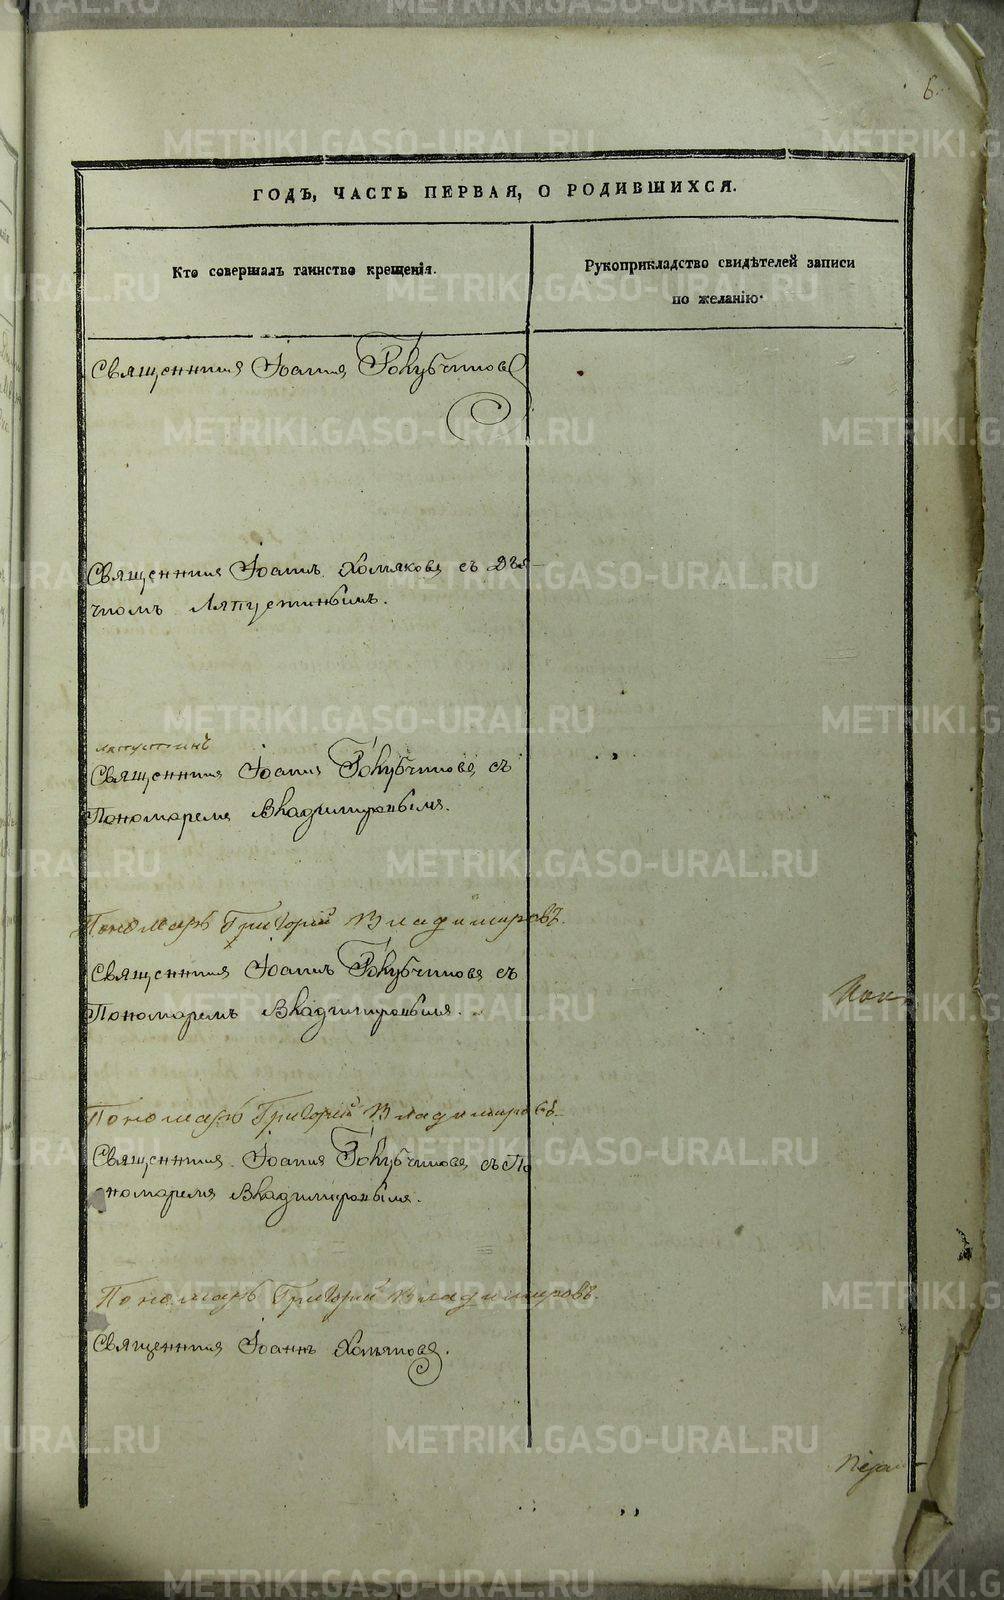 6.
ГОДЪ, ЧАСТЬ ПЕРВАЯ, О РОДИВШИХСЯ.
Кто совершалъ таинство крещенія.
Рукоприкладство свидѣтелей записи
по желанію.
Священникъ Іоаннъ Голубчиковъ
Священникъ Іоаннъ Хомяковъ съ Дья-
чкомъ Ляпустинымъ.
Ляпустинъ
Священникъ Іоаннъ Голубчиковъ съ
Пономаремъ Владимировымъ.
Пономарь Григорій Владимировъ.
Священникъ Іоаннъ Голубчиковъ съ
Пономаремъ Владимировымъ.
Пономарь Григорій Владимировъ.
Священникъ Іоаннъ Голубчиковъ съ По
номаремъ Владимировымъ.
Пономарь Григорій Владимировъ.
Священникъ Іоаннъ Хомяковъ.
METRIKI.GASO-URAL.RU